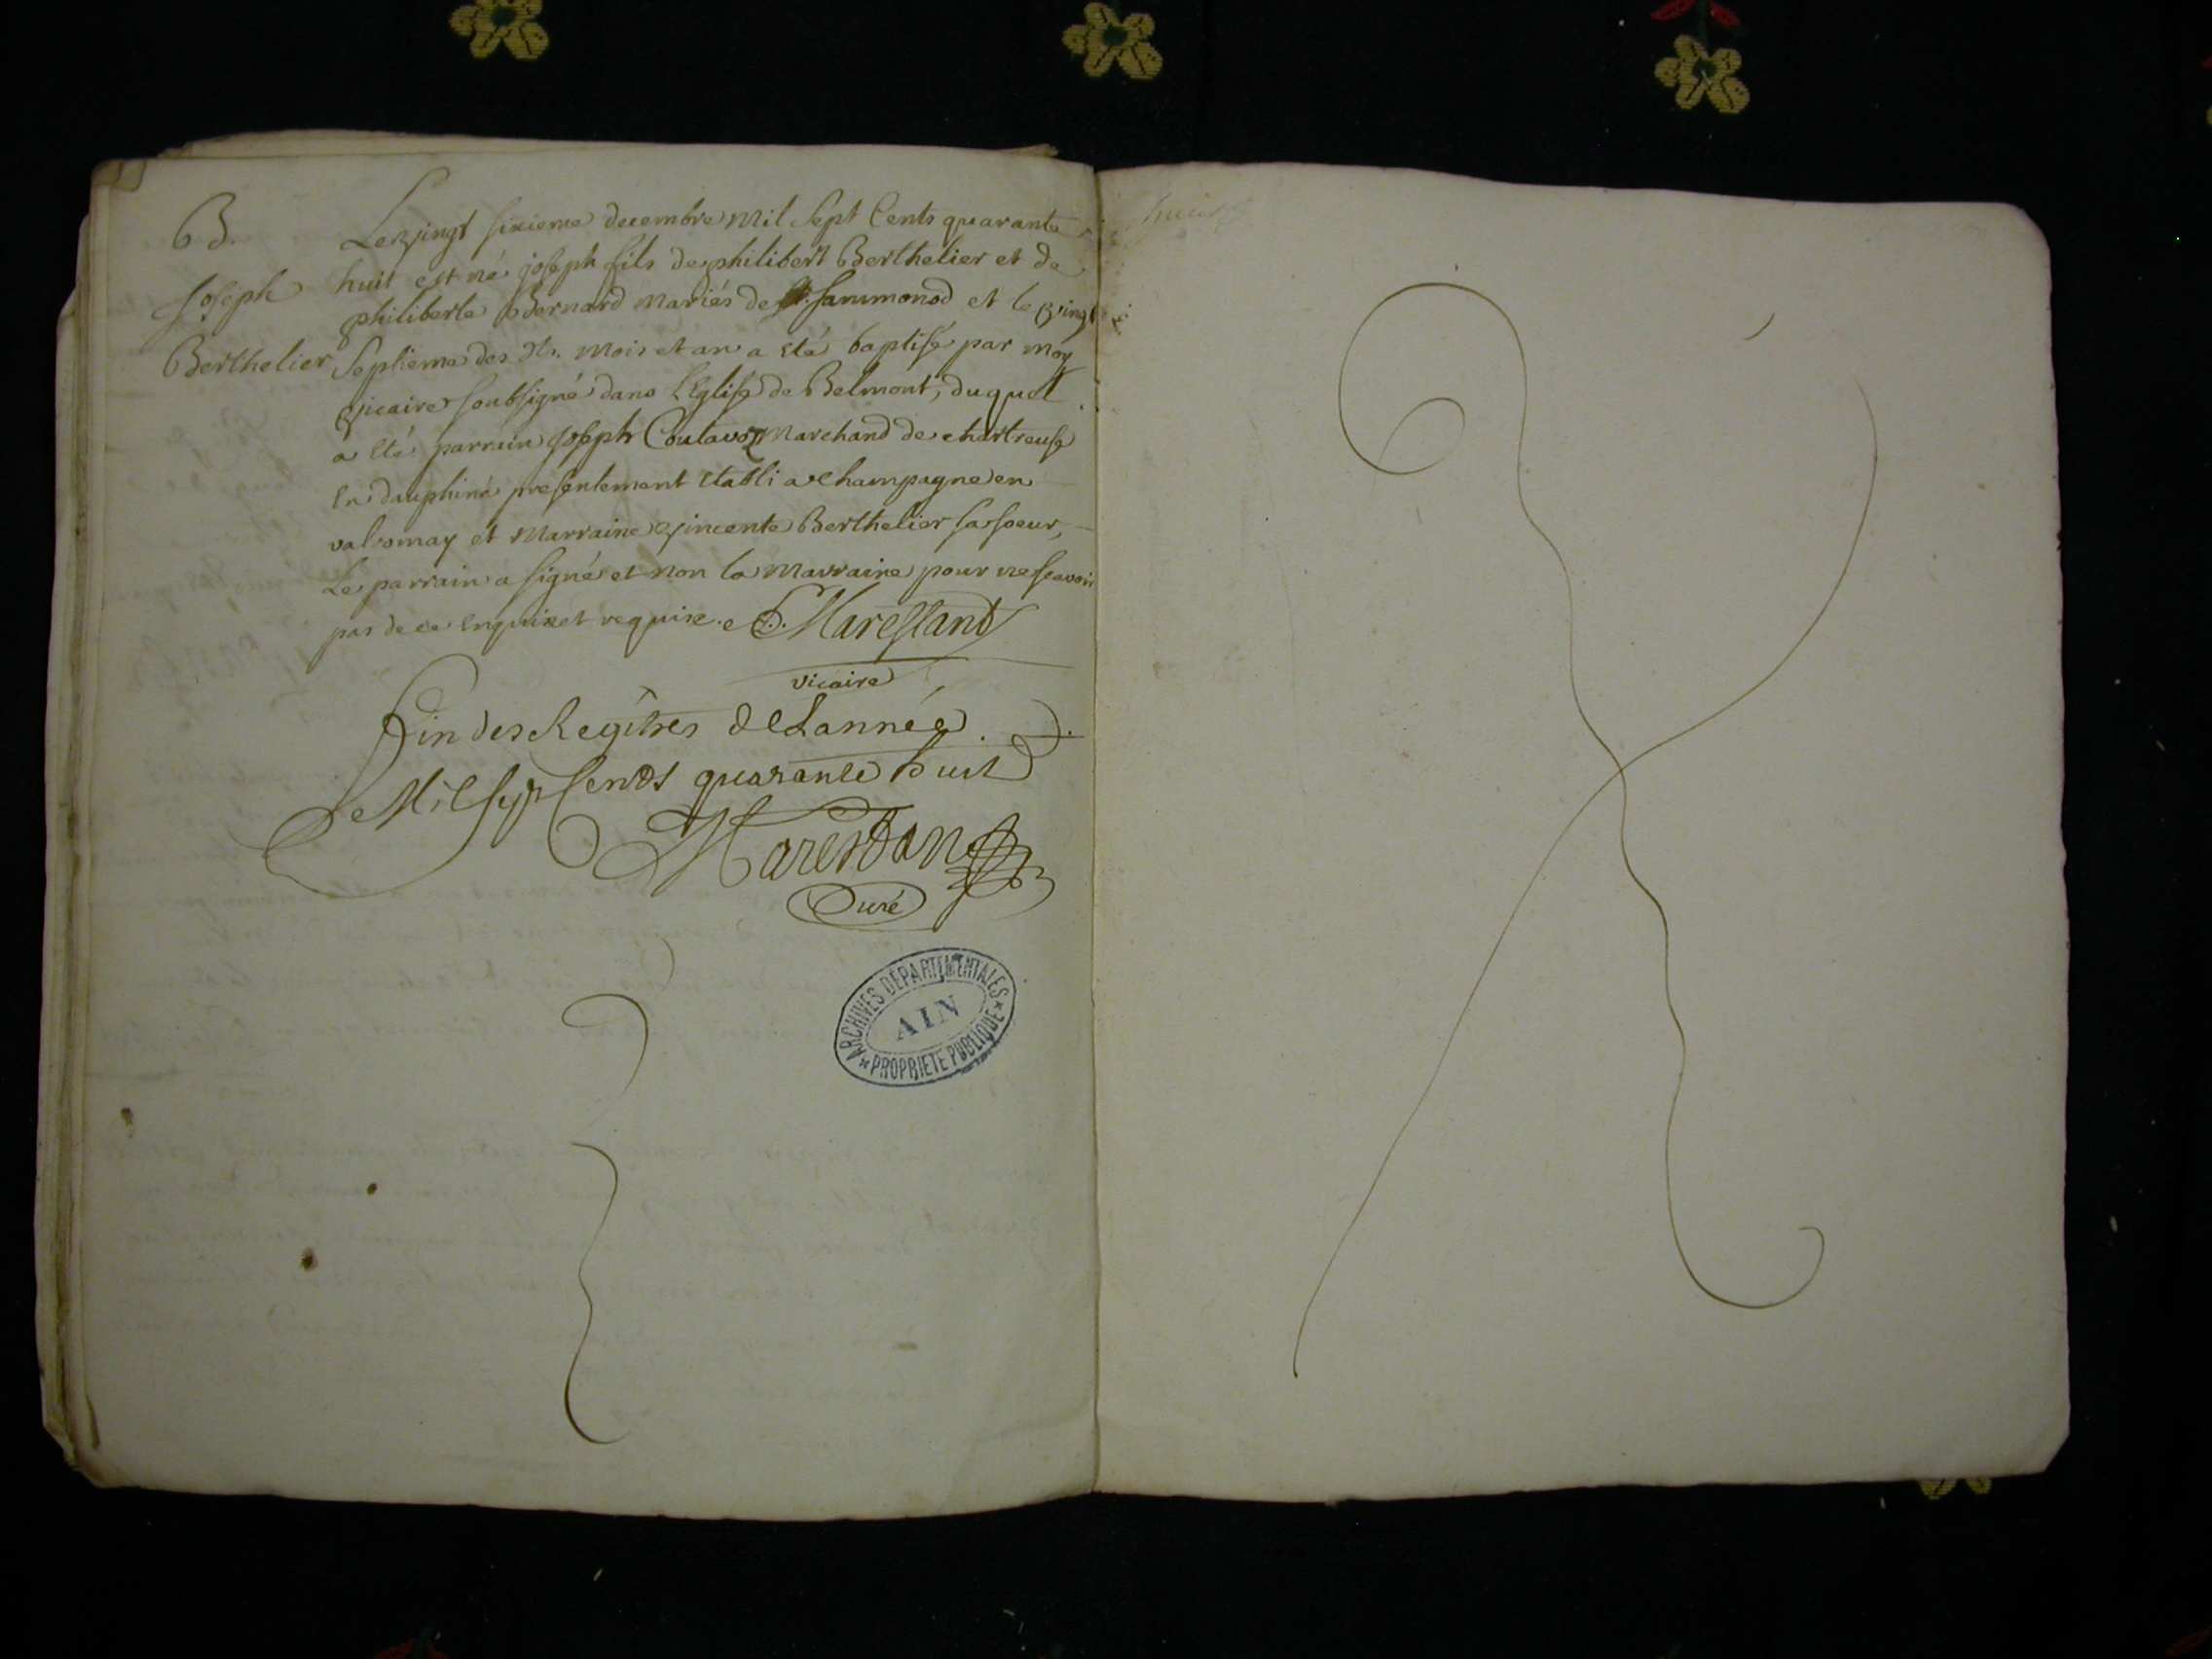 B.
Joseph
Berthelier
Le vingt sixieme decembre mil sept Cents quarante
huit est né joseph fils de philibert Berthelier et de
philiberte Bernard mariés de sammonod et le vingt
septieme des dts. mois et an a eté baptisé par moy
vicaire soubsigné dans l'Eglise de Belmont, duquel
a eté parrain joseph Coutavoz Marchand de chartreuse
en dauphiné presentement etabli a champagne en
valromay et Marraine vincente Berthelier sa soeur,
Le parrain a signé et non la marraine pour ne sçavoir
pas de ce enquise et requise. Marestand
vicaire
fin des Regîtres de Lannée
Mil sept Cents quarante huit
Marestan
Curé
ARCHIVES DÉPARTEMENTALES
AIN
PROPRIÉTÉ PUBLIQUE